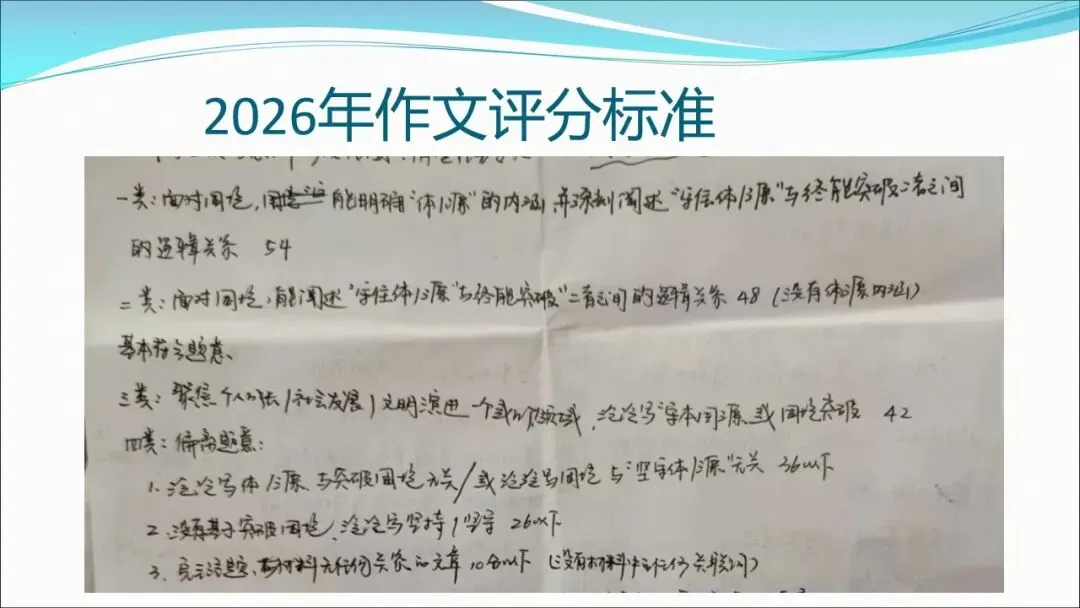 2026年作文评分标准
一类：面对困境，能明确“体/源”的内涵，并深刻阐述“守住体/源”与终能突破二者之间
的逻辑关系 54
二类：面对困境，能阐述“守住体/源”与终能突破”二者之间的逻辑关系 48（没有体源内涵）
基本符合题意。
三类：聚焦个人成长/社会发展/文明演进一个或几个领域，泛泛写“守本回源或困境突破 42
四类：偏离题意：
1.泛泛写体/源与突破困境无关/或泛泛写困境与“坚守体/源”无关 36以下
2.没有基于突破困境，泛泛写坚持/坚守 26以下
3.完全离题，与材料无任何关系的文章10分以下（没有材料中任何关联词）